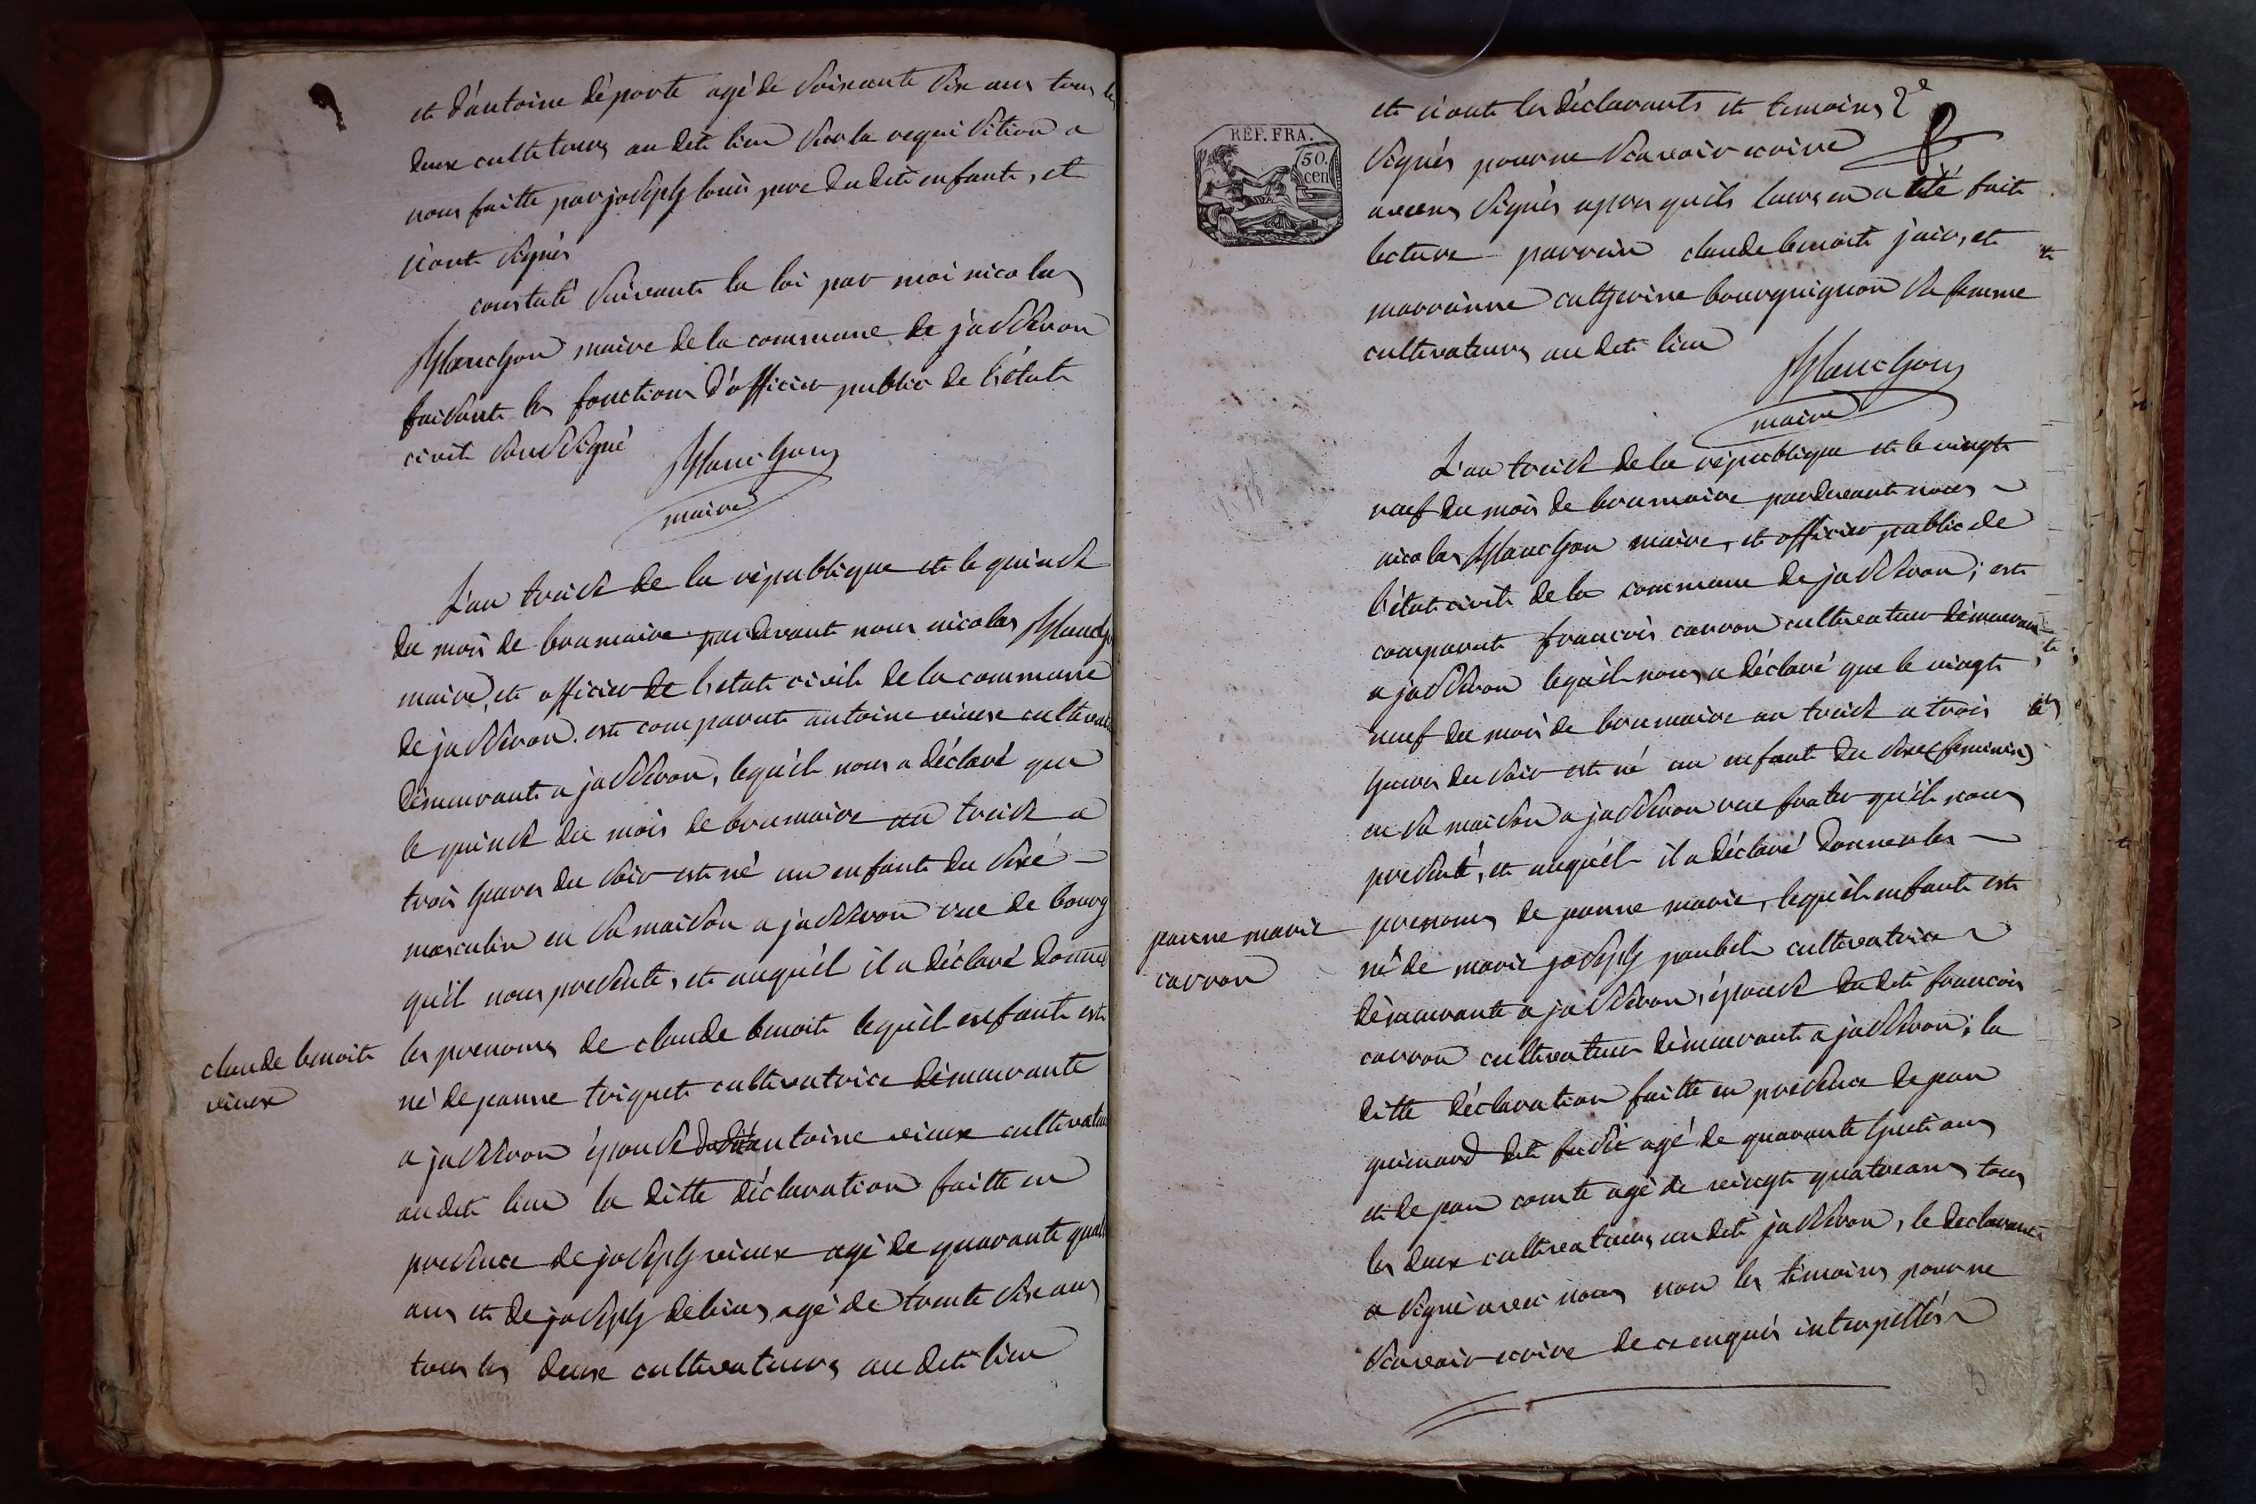 et d'antoine déporte agé de soixante six ans tous les
deux cultiteurs au dit lieu sur la requisition a
nous faitte par joseph louis pere du dit enfant, et
n'ont signés
constaté suivant la loi par moi nicolas
planchon maire de la commune de jasseron
faisant les fonctions d'officier public de l'état
civil soussigné
planchon
maire
L'an treise de la république et le quinse
du mois de brumaire pardevant nous nicolas plancho
maire, et officier de l'etat civil de la commune
de jasseron est comparut antoine vieux cultivat
démeurant a jasseron, lequ'el nous a déclaré que
le quinse du mois de brumaire an treise a
trois heures du soir est né un enfant du sexe
masculin en sa maison a jasseron rue de bourg
qu'il nous presente, et auqu'el il a déclaré donner
claude benoit
vieux
les prenoms de claude benoit lequ'el enfant est
né de janne triquet cultivatrice démeurante
a jasseron épouse dudit antoine vieux cultivateu
au dit lieu la ditte déclaration faitte en
presence de joseph vieux agé de quarante quat
ans et de joseph debias agé de trente six ans
tous les deux cultivateurs au dit lieu
REP. FRA.
50
cen
et n'ont les déclarants et temoins 2e
signés pour ne scavoir ecrire
avecns signés apres qu'ils leurs en a été fait
lecture parrein claude benoit jair, et
marrainne catherine bourguignon sa femme
cultivateurs au dit lieu
planchon
maire
L'an treise de la république et le vingt
neuf du mois de brumaire pardevant nous
nicolas planchon maire, et officier public de
l'état civil de la commune de jasseron; est
comparut francois carron cultivateur démeurant
a jasseron lequ'el nous a déclaré que le vingt
neuf du mois de brumaire an treise a trois
heures du soir est né un enfant du sexe (feminin)
en sa maison a jasseron rue frater qu'il nous
presenté, et auqu'el il a déclaré donner les
janne marie
carron
prenoms de janne marie, lequ'el enfant est
né de marie joseph janbel cultivatrice
démeurante a jasseron, épouse du dit francois
carron cultivateur démeurant a jasseron; la
ditte déclaration faitte en presence de jean
guinard dit fusic agé de quarante huit ans
et de jean comte agé de vingt quatre ans tous
les deux cultivateurs au dit jasseron, le declarant
a signé avec nous non les témoins pour ne
scavoir ecrire de ce enquis interpellés